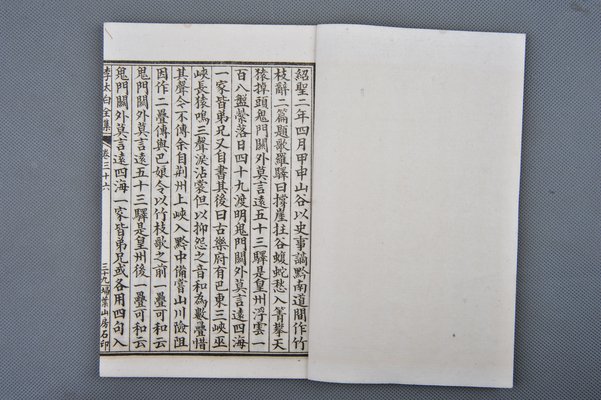 紹聖二年四月甲申山谷以史事謫黔南道間作竹
枝辭二篇題歌羅驛曰撐崖拄谷蝮蛇愁入箐攀天
猿掉頭鬼門關外莫言遠五十三驛是皇州浮雲一
百八盤縈落日四十九渡明鬼門關外莫言遠四海
一家皆弟兄又自書其後曰古樂府有巴東三峽巫
峽長猿鳴三聲淚沾裳但以抑怨之音和為數疊惜
其聲今不傳余自荊州上峽入黔中備嘗山川險阻
因作二疊傳與巴娘令以竹枝歌之前一疊可和云
鬼門關外莫言遠五十三驛是皇州後一疊可和云
鬼門關外莫言遠四海一家皆弟兄或各用四句入
李太白全集
卷三十六
三十九
埽葉山房石印